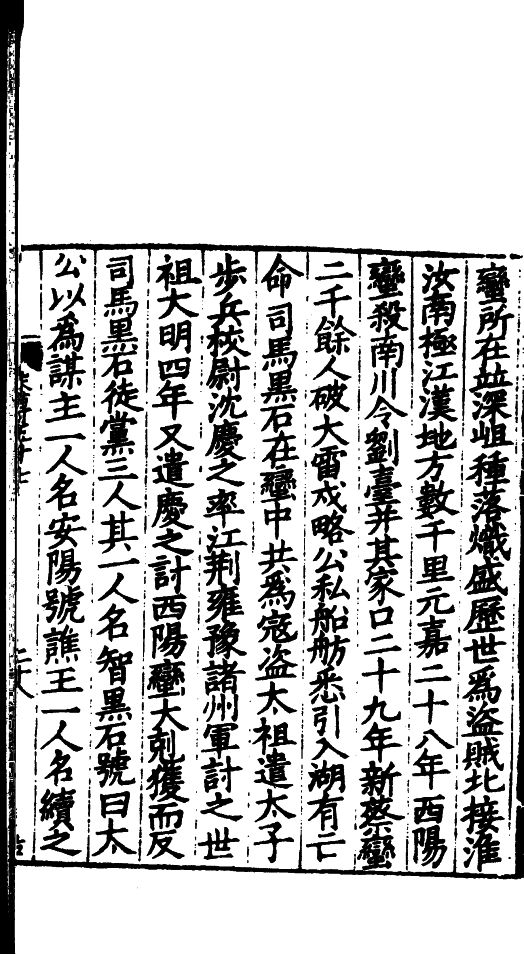 蠻所在並深岨種落熾盛歷世爲盜賊北接淮
汝南極江漢地方數千里元嘉二十八年西陽
蠻殺南川令劉臺并其家口二十九年新蔡蠻
二千餘人破大雷戍略公私船舫悉引入湖有亡
命司馬黑石在蠻中共爲寇盜太祖遣太子
步兵校尉沈慶之率江荆雍豫諸州軍討之世
祖大明四年又遣慶之討西陽蠻大剋獲而反
司馬黑石徒黨三人其一人名智黑石號曰太
公以爲謀主一人名安陽號譙王一人名續之